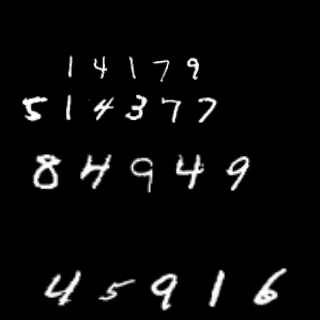 14179
514377
84949
45916